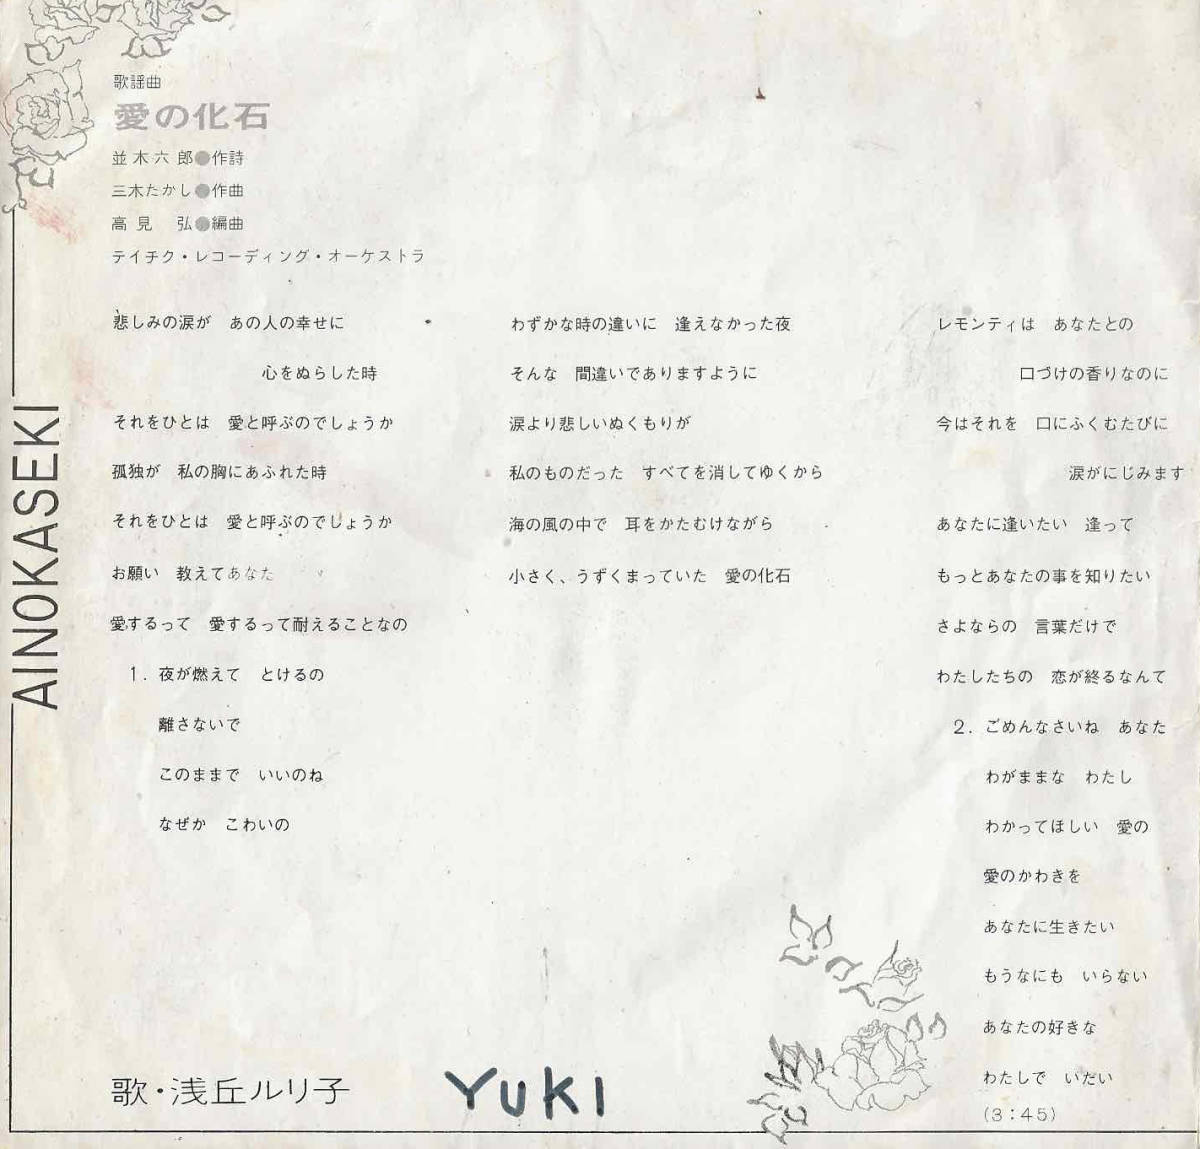 歌謡曲
愛の化石
並木六郎●作詩
三木たかし●作曲
高見 弘●編曲
テイチク・レコーディング・オーケストラ
悲しみの涙が あの人の幸せに
心をぬらした時
それをひとは 愛と呼ぶのでしょうか
孤独が 私の胸にあふれた時
それをひとは 愛と呼ぶのでしょうか
お願い 教えてあなた
愛するって 愛するって耐えることなの
1. 夜が燃えて とけるの
離さないで
このままで いいのね
なぜか こわいの
わずかな時の違いに 逢えなかった夜
そんな 間違いでありますように
涙より悲しいぬくもりが
私のものだった すべてを消してゆくから
海の風の中で 耳をかたむけながら
小さく、うずくまっていた 愛の化石
レモンティは あなたとの
口づけの香りなのに
今はそれを 口にふくむたびに
涙がにじみます
あなたに逢いたい 逢って
もっとあなたの事を知りたい
さよならの 言葉だけで
わたしたちの 恋が終るなんて
2. ごめんなさいね あなた
わがままな わたし
わかってほしい 愛の
愛のかわきを
あなたに生きたい
もうなにも いらない
あなたの好きな
わたしで いたい
(3:45)
歌・浅丘ルリ子
YUKI
AINOKASEKI